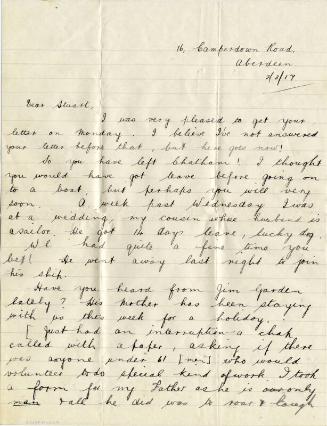 16, Camperdown Road,
Aberdeen
2/2/17
Dear Stuart,
I was very pleased to get your
letter on Monday. I believe I've not answered
your letter before that, but here goes now!
So you have left Chatham! I thought
you would have got leave before going on
to a boat, but perhaps you will very
soon. A week past Wednesday I was
at a wedding, my cousin whose husband is
a sailor. He got 14 days leave, lucky dog.
We had quite a fine time you
bet! He went away last night to join
his ship.
Have you heard from Jim Garden
lately? His mother has been staying
with us this week for a holiday.
[Just had an interruption - a chap
called with a paper, asking if there
was anyone under 61 [men] who would
volunteer to do special kind of work. I took
a form for my Father as he is our only
man & all he did was to roar & laugh